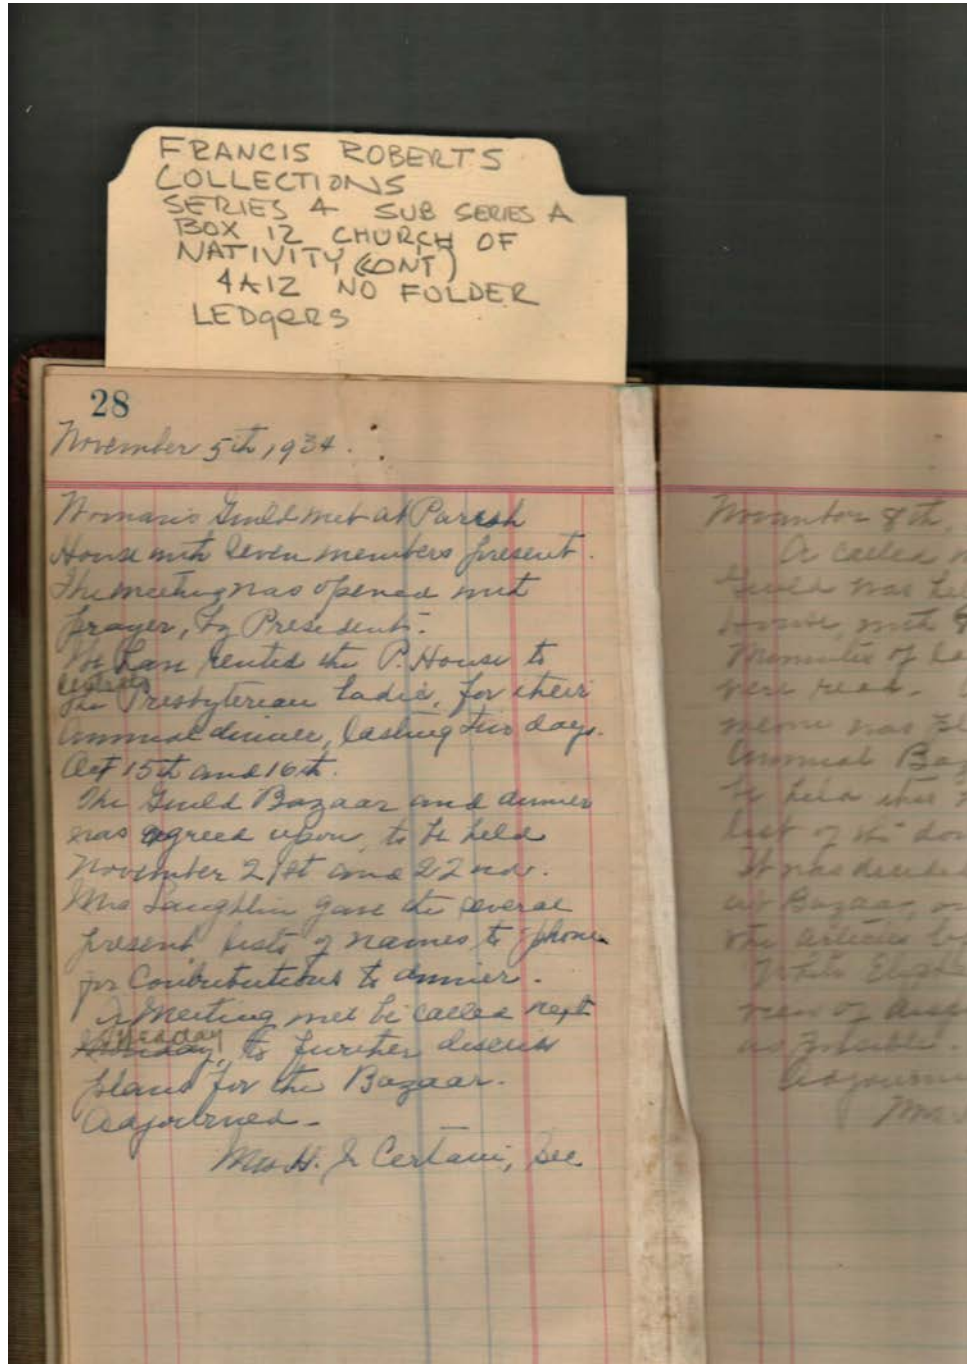 FRANCIS ROBERTS
COLLECTIONS
SERIES 4 SUB SERIES A
BOX 12 CHURCH OF
NATIVITY (CONT)
4A12 NO FOLDER
LEDgERS
28
November 5th, 1934.
Woman's Guild met at Parish
House with seven members present.
The meeting was opened with
prayer, by President.
We have rented the P. House to
the Presbyterian ladie, for their
annual dinner, lasting two days.
Oct 15th and 16th.
The Guild Bazaar and dinner
was agreed upon, to be held
November 21st and 22nd.
Mrs Laughlin gave the several
present lists of names to phone
for Contributions to dinner.
A Meeting will be called next
Monday Tuesday, to further discuss
plans for the Bazaar.
Adjourned.
Mrs H. Certain, Sec
November 8th
A called
Guild was
with
Minutes of
were read.
was
Annual
be held this
list of the
It was decided
Bazaar,
the articles
White
as possible.